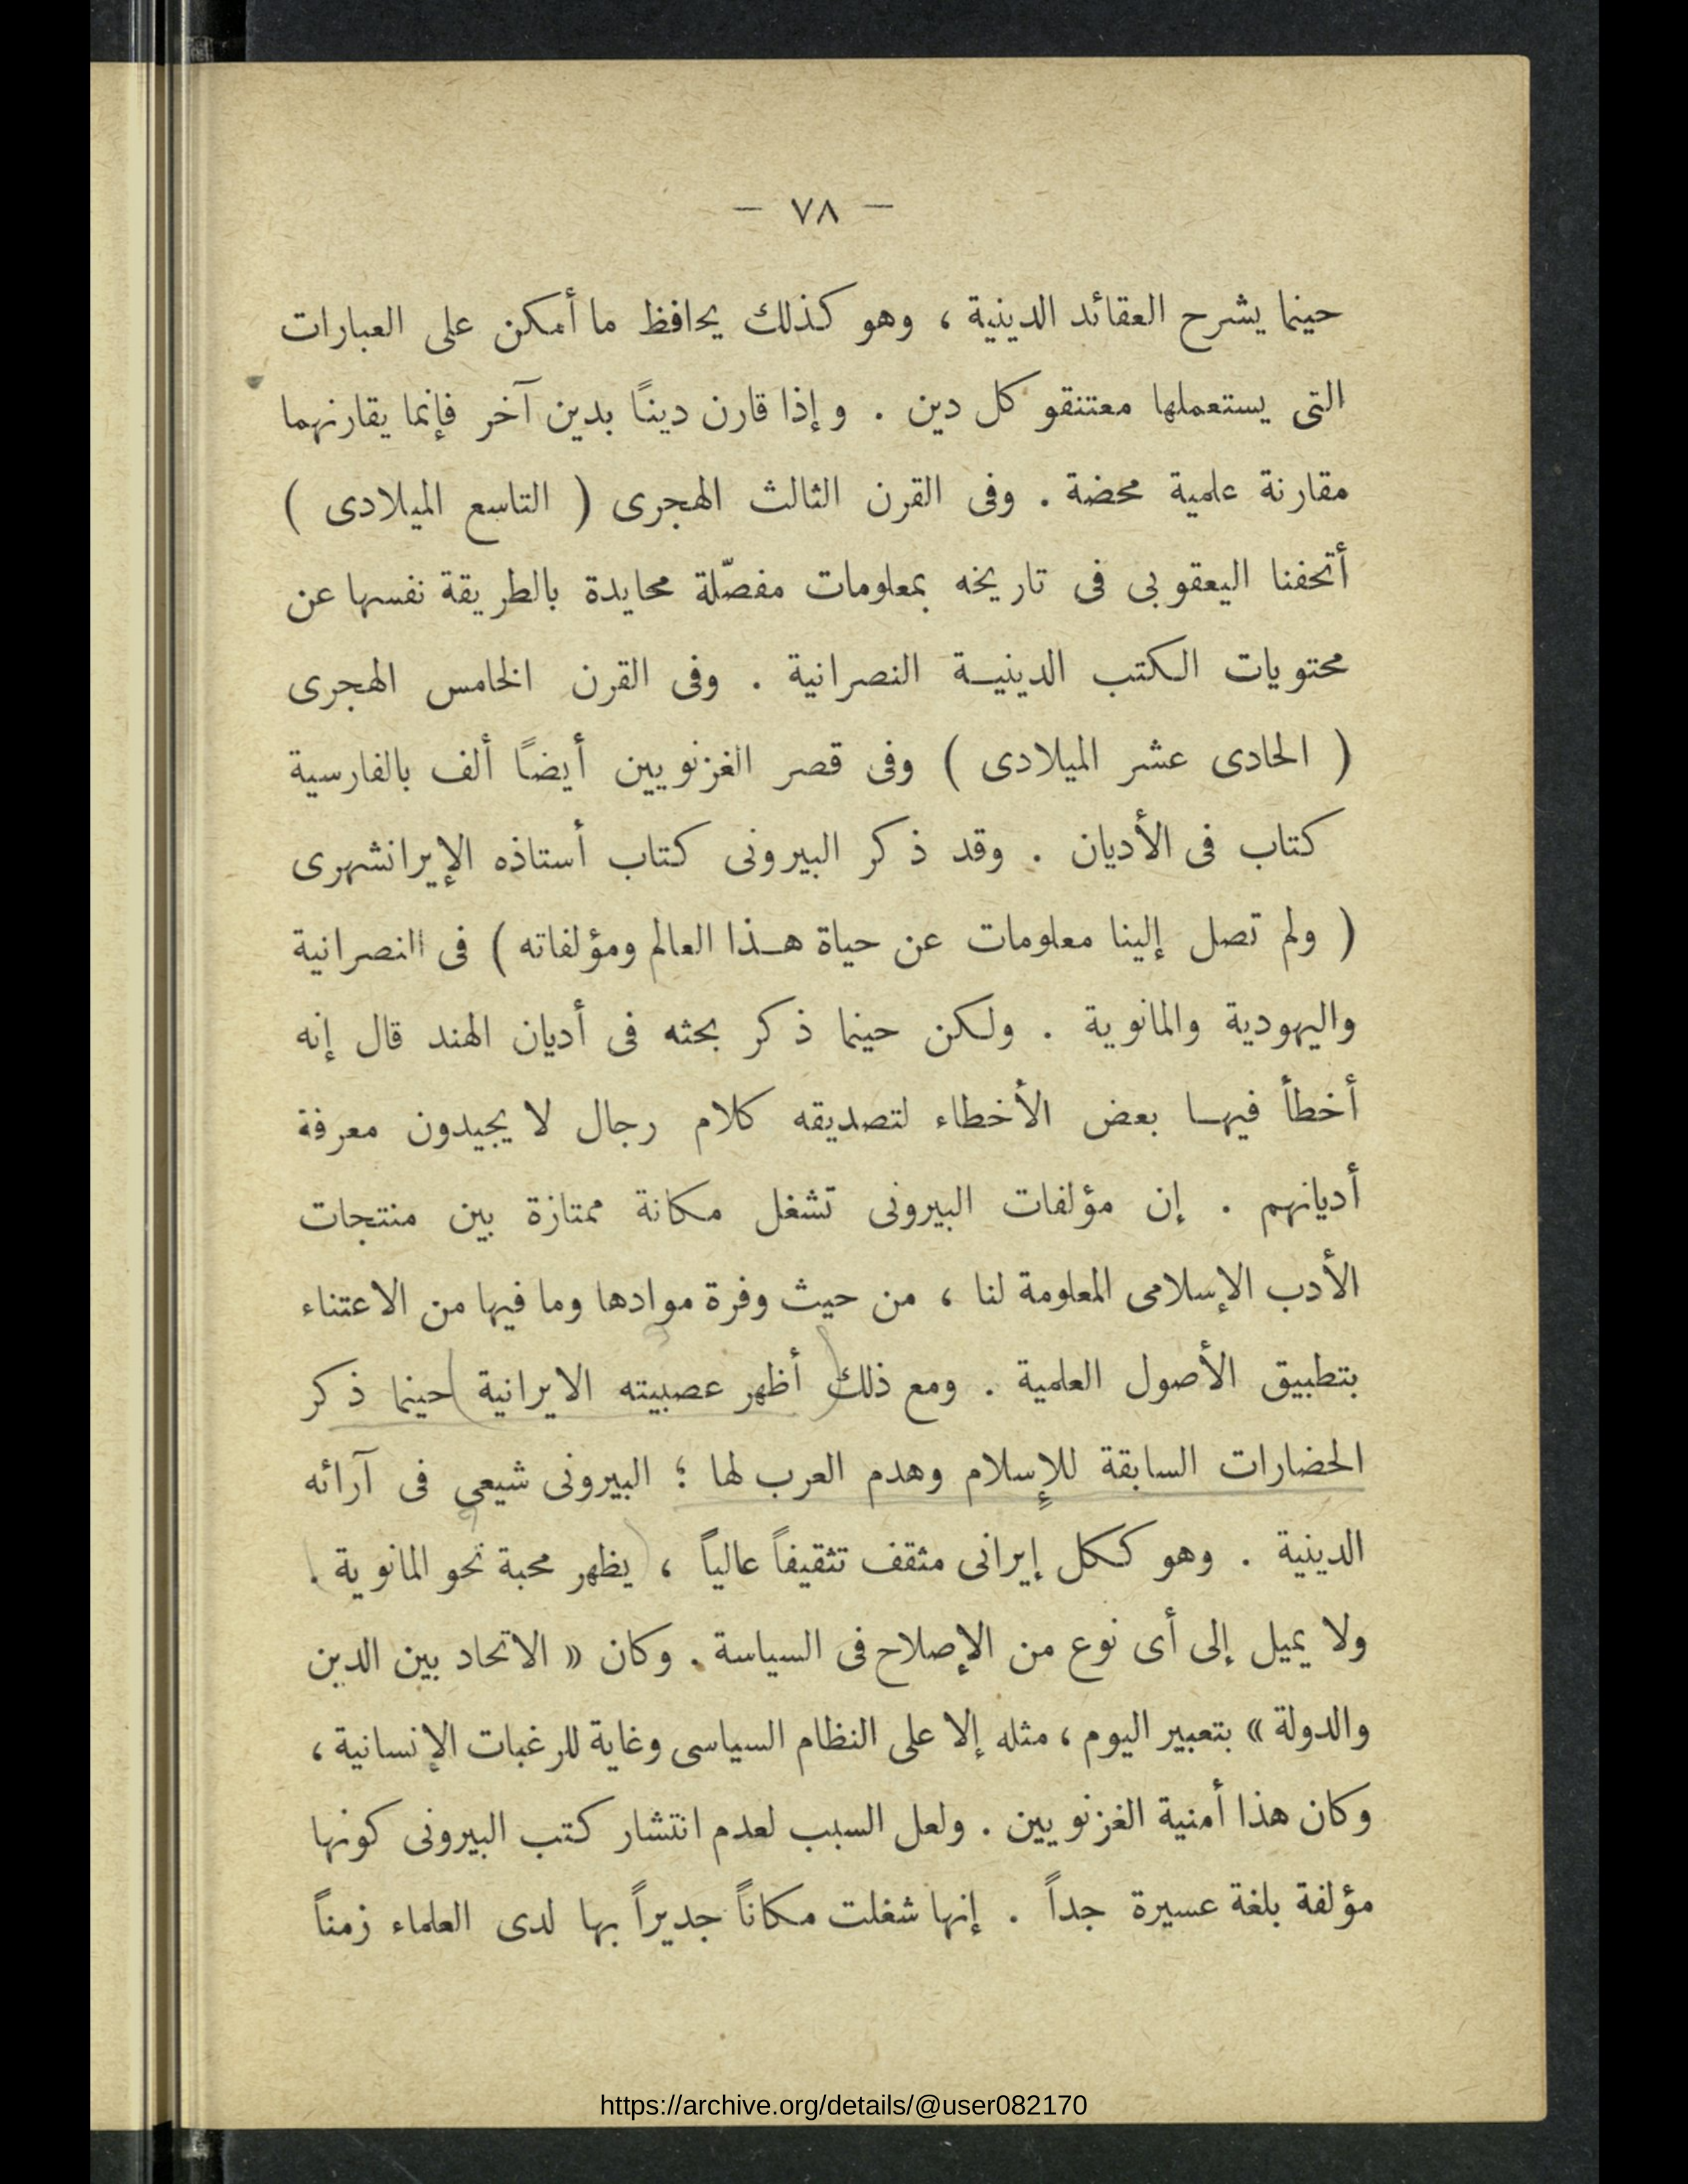 — ٧٨ —
حينما يشرح العقائد الدينية ، وهو كذلك يحافظ ما أمكن على العبارات
التى يستعملها معتنقو كل دين . وإذا قارن دينًا بدين آخر فإنما يقارنهما
مقارنة علمية محضة . وفى القرن الثالث الهجرى ( التاسع الميلادى )
أتحفنا اليعقوبى فى تاريخه بمعلومات مفصّلة محايدة بالطريقة نفسها عن
محتويات الكتب الدينيـة النصرانية . وفى القرن الخامس الهجرى
( الحادى عشر الميلادى ) وفى قصر الغزنويين أيضًا ألف بالفارسية
كتاب فى الأديان . وقد ذكر البيرونى كتاب أستاذه الإيرانشهرى
( ولم تصل إلينا معلومات عن حياة هـذا العالم ومؤلفاته ) فى النصرانية
واليهودية والمانوية . ولكن حينما ذكر بحثه فى أديان الهند قال إنه
أخطأ فيهـا بعض الأخطاء لتصديقه كلام رجال لا يجيدون معرفة
أديانهم . إن مؤلفات البيرونى تشغل مكانة ممتازة بين منتجات
الأدب الإسلامى المعلومة لنا ، من حيث وفرة موادها وما فيها من الاعتناء
بتطبيق الأصول العلمية . ومع ذلك أظهر عصبيته الايرانية حينما ذكر
الحضارات السابقة للإسلام وهدم العرب لها ؛ البيرونى شيعي فى آرائه
الدينية . وهو ككل إيرانى مثقف تثقيفاً عالياً ، يظهر محبة نحو المانوية .
ولا يميل إلى أى نوع من الإصلاح فى السياسة . وكان « الاتحاد بين الدين
والدولة » بتعبير اليوم ، مثله إلا على النظام السياسى وغاية للرغبات الإنسانية ،
وكان هذا أمنية الغزنويين . ولعل السبب لعدم انتشار كتب البيرونى كونها
مؤلفة بلغة عسيرة جداً . إنها شغلت مكاناً جديراً بها لدى العلماء زمناً
https://archive.org/details/@user082170